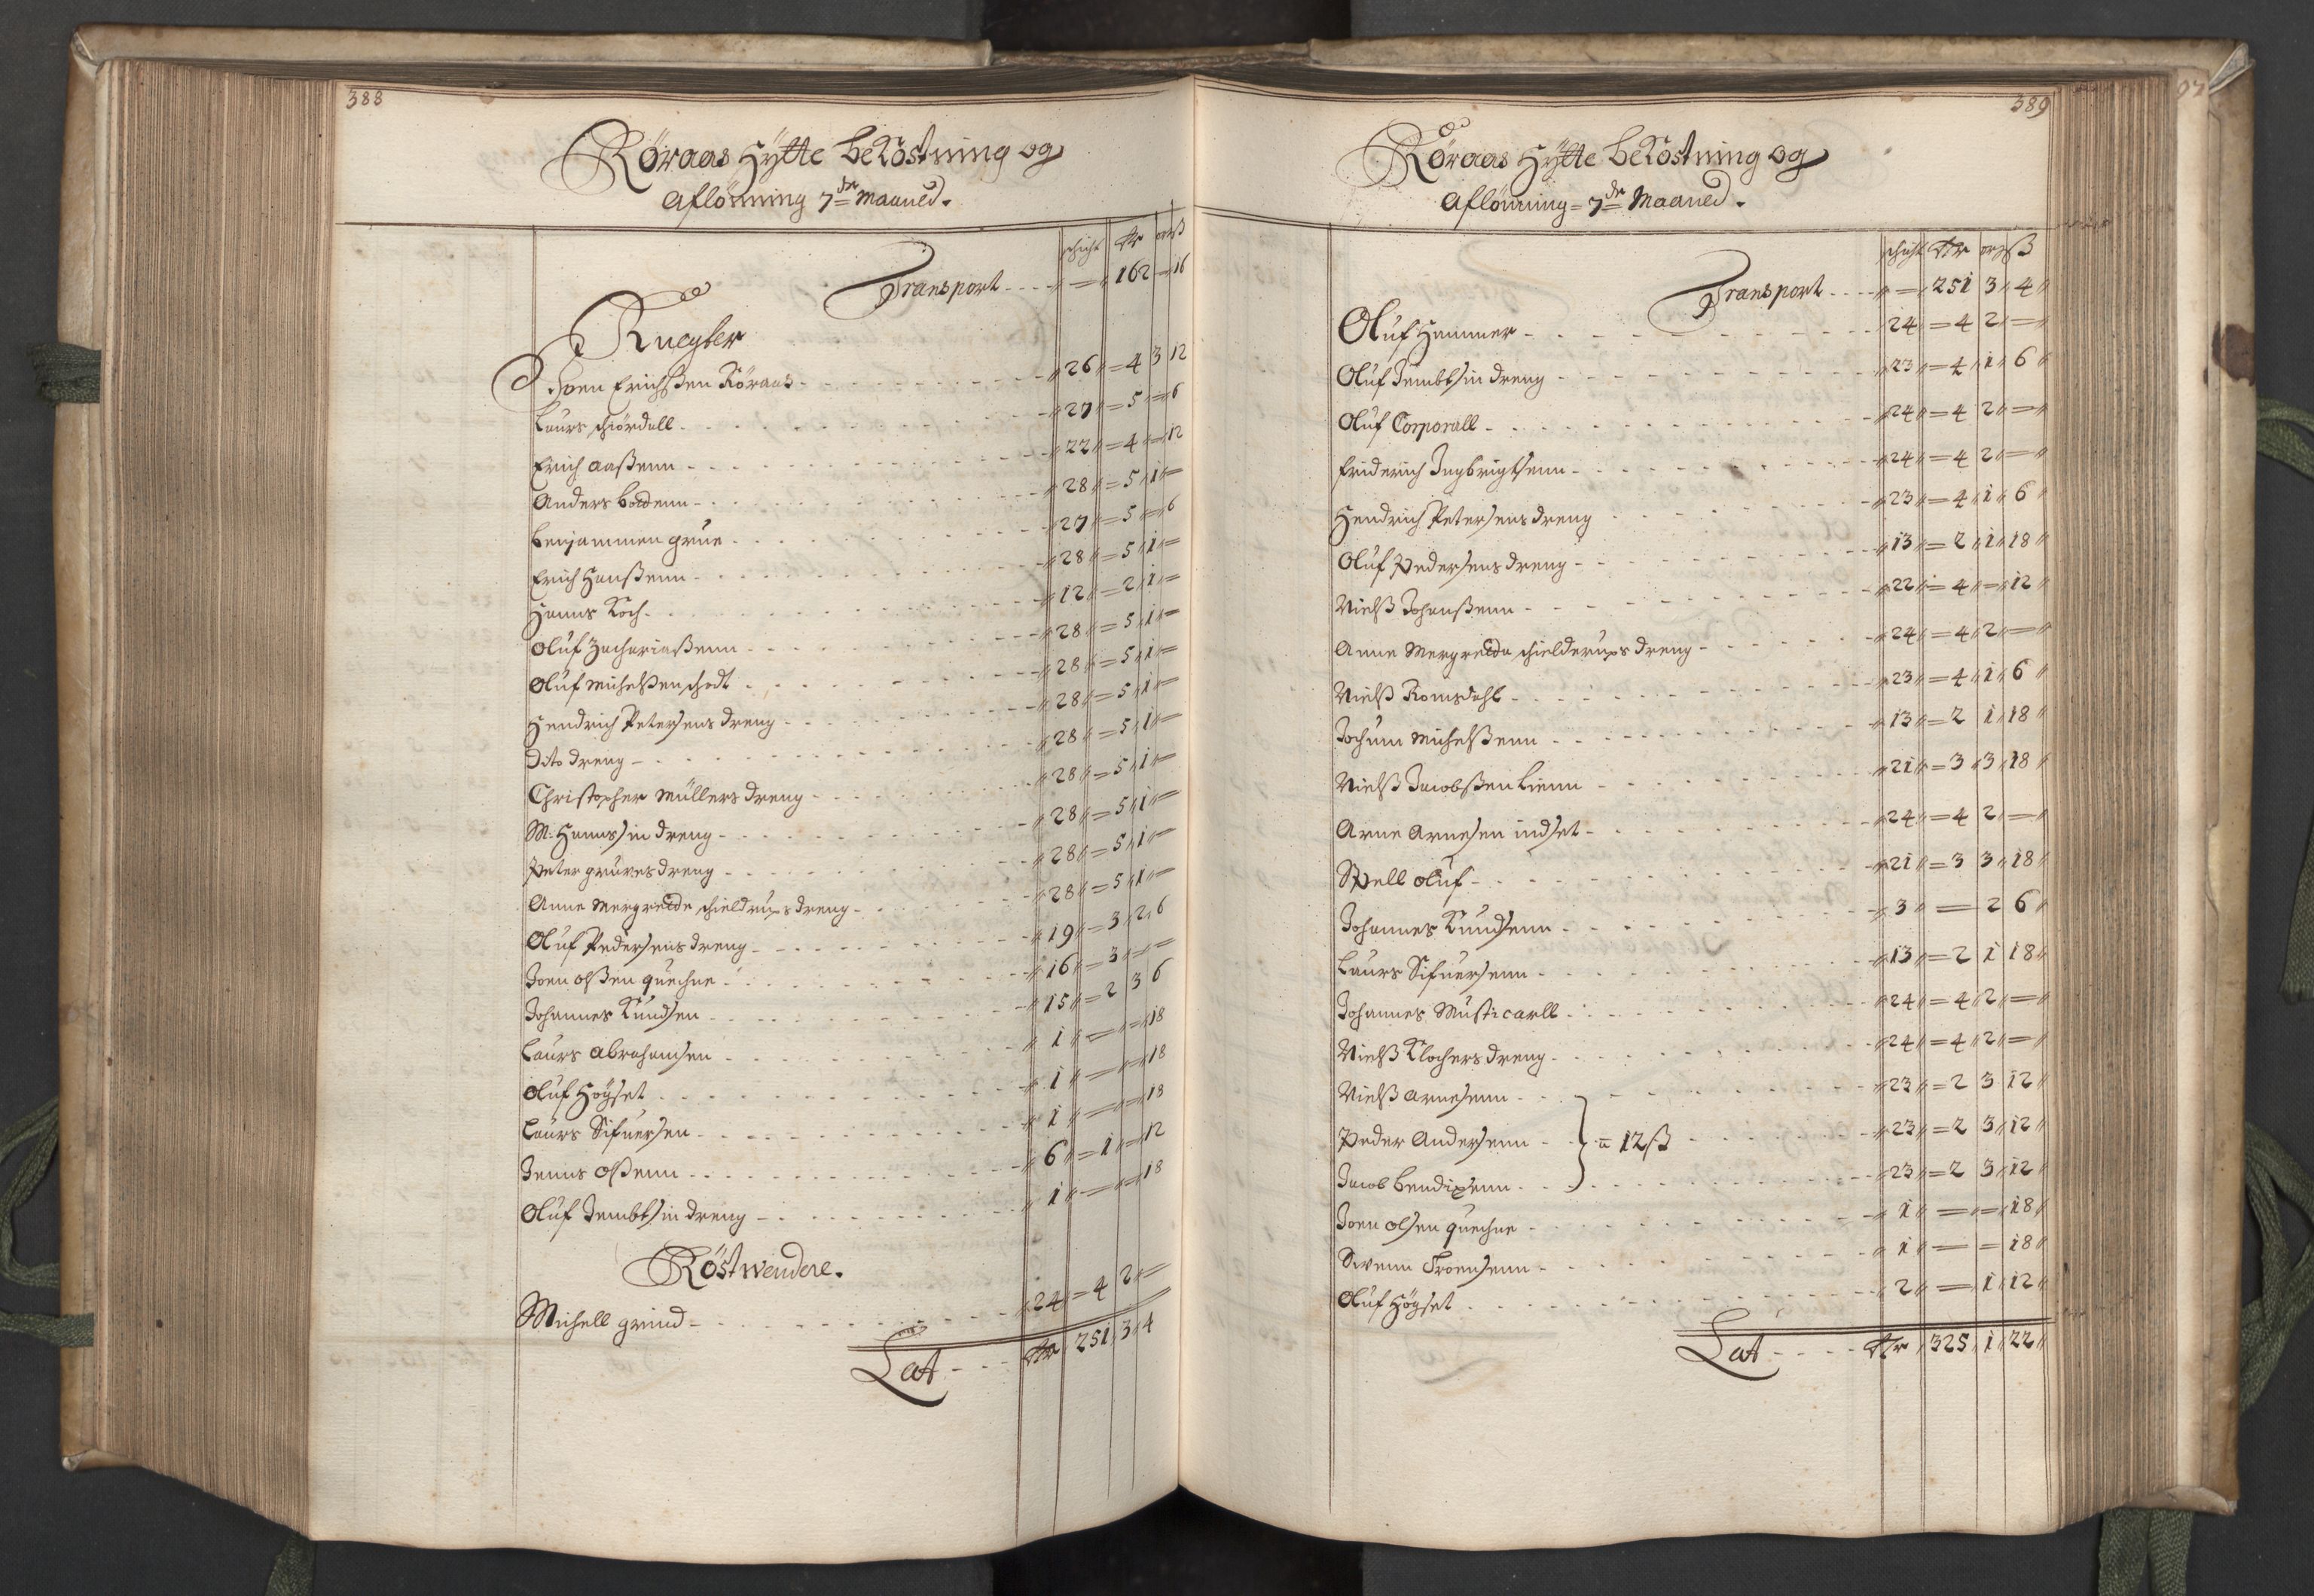 388
Röraas Hytte bekostning og
Aflönning 7de Maaned.
schicht Rdr ort ß
Transport - - - - " = " 162 = 16
Knegter
Joen Erichßen Röraas - 26 = 4 3 12
Laurs schiördall - 27 = 5 = 6
Erich Aaßenn - 22 = 4 = 12
Anders boldenn - 28 = 5 1 =
Benjammen grue - 27 = 5 = 6
Erich Hanßenn - 28 = 5 1 =
Hanns Koch - 12 = 2 1 =
Oluf Zachariaßenn - 28 = 5 1 =
Oluf Michelßen schodt - 28 = 5 1 =
Hendrich Petersens dreng - 28 = 5 1 =
Dito dreng - 28 = 5 1 =
Christopher Müllers dreng - 28 = 5 1 =
M: Hanns sin dreng - 28 = 5 1 =
Peter grüves dreng - 28 = 5 1 =
Anne Mergrette schieldrups dreng - 28 = 5 1 =
Oluf Pedersens dreng - 19 = 3 2 6
Joen olßen quechne - 16 = 3 = =
Johannes Knudsen - 15 = 2 3 6
Laurs Abrahamsen - 1 = = 18
Oluf Högset - 1 = = 18
Laurs Sifuersen - 1 = = 18
Jenns Olßenn - 6 = 1 = 12
Oluf Jembt sin dreng - 1 = = 18
Röstwendere.
Michell grind - 24 = 4 2 =
Lat - - - Rdr 251 3 4
389
Röraas Hytte bekostning og
Aflönning = 7de Maaned.
schicht Rdr ort ß
Transport - - - - " = 251 3 4
Oluf Hammer - 24 = 4 2 =
Oluf Jembt sin dreng - 23 = 4 1 6
Oluf Corporall - 24 = 4 2 =
Friderich Ingbrigtsenn - 24 = 4 2 =
Hendrich Petersens dreng - 23 = 4 1 6
Oluf Pedersens dreng - 13 = 2 1 18
Nielß Johanßenn - 22 = 4 = 12
Anne Mergrette schielderups dreng - 24 = 4 2 =
Nielß Romsdahl - 23 = 4 1 6
Jochum Michelßenn - 13 = 2 1 18
Nielß Jacobßen Lienn - 21 = 3 3 18
Arne Arnesen indset - 24 = 4 2 =
Spell oluf - 21 = 3 3 18
Johannes Knudsenn - 3 = 2 6
Laurs Sifuersenn - 13 = 2 1 18
Johannes Musticarll - 24 = 4 2 =
Nielß Klochers dreng - 24 = 4 2 =
Nielß Arnesenn - 23 = 2 3 12
Peder Andersenn - } a 12 ß - 23 = 2 3 12
Jacob Bendixenn - 23 = 2 3 12
Joen olsen quechne - 1 = = 18
Swenn Troensenn - 1 = = 18
Oluf Högset - 2 = 1 12
Lat - - - - Rdr 325 1 22